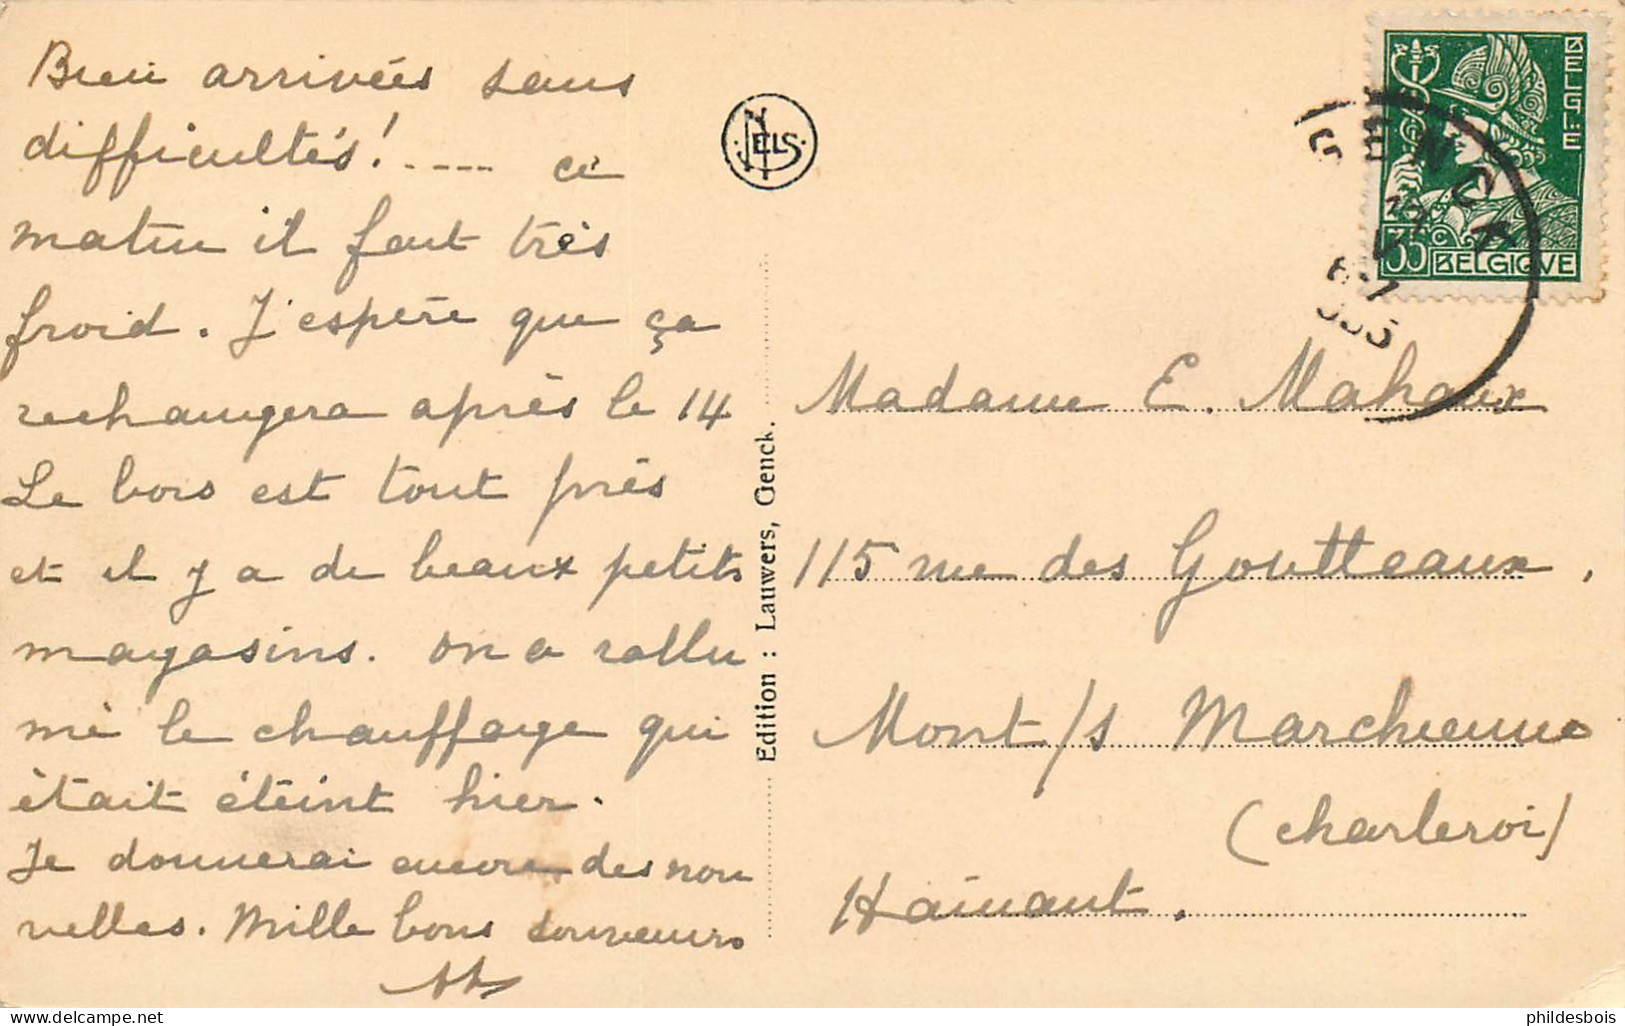 Bien arrivées sans
difficultés!.---- ce
matin il fait très
froid. J'espère que ça
rechangera après le 14
Le bois est tout près
et il y a de beaux petits
magasins. on a rallu
mé le chauffage qui
était éteint hier.
Je donnerai encore des nou
velles. Mille bons souvenirs
NELS
Edition : Lauwers, Genck.
BELGIË
35 BELGIQUE
GENCK
Madame E. Mahaux
115 rue des Goutteaux,
Mont/s Marchienne
(Charleroi)
Hainaut.
phildesbois